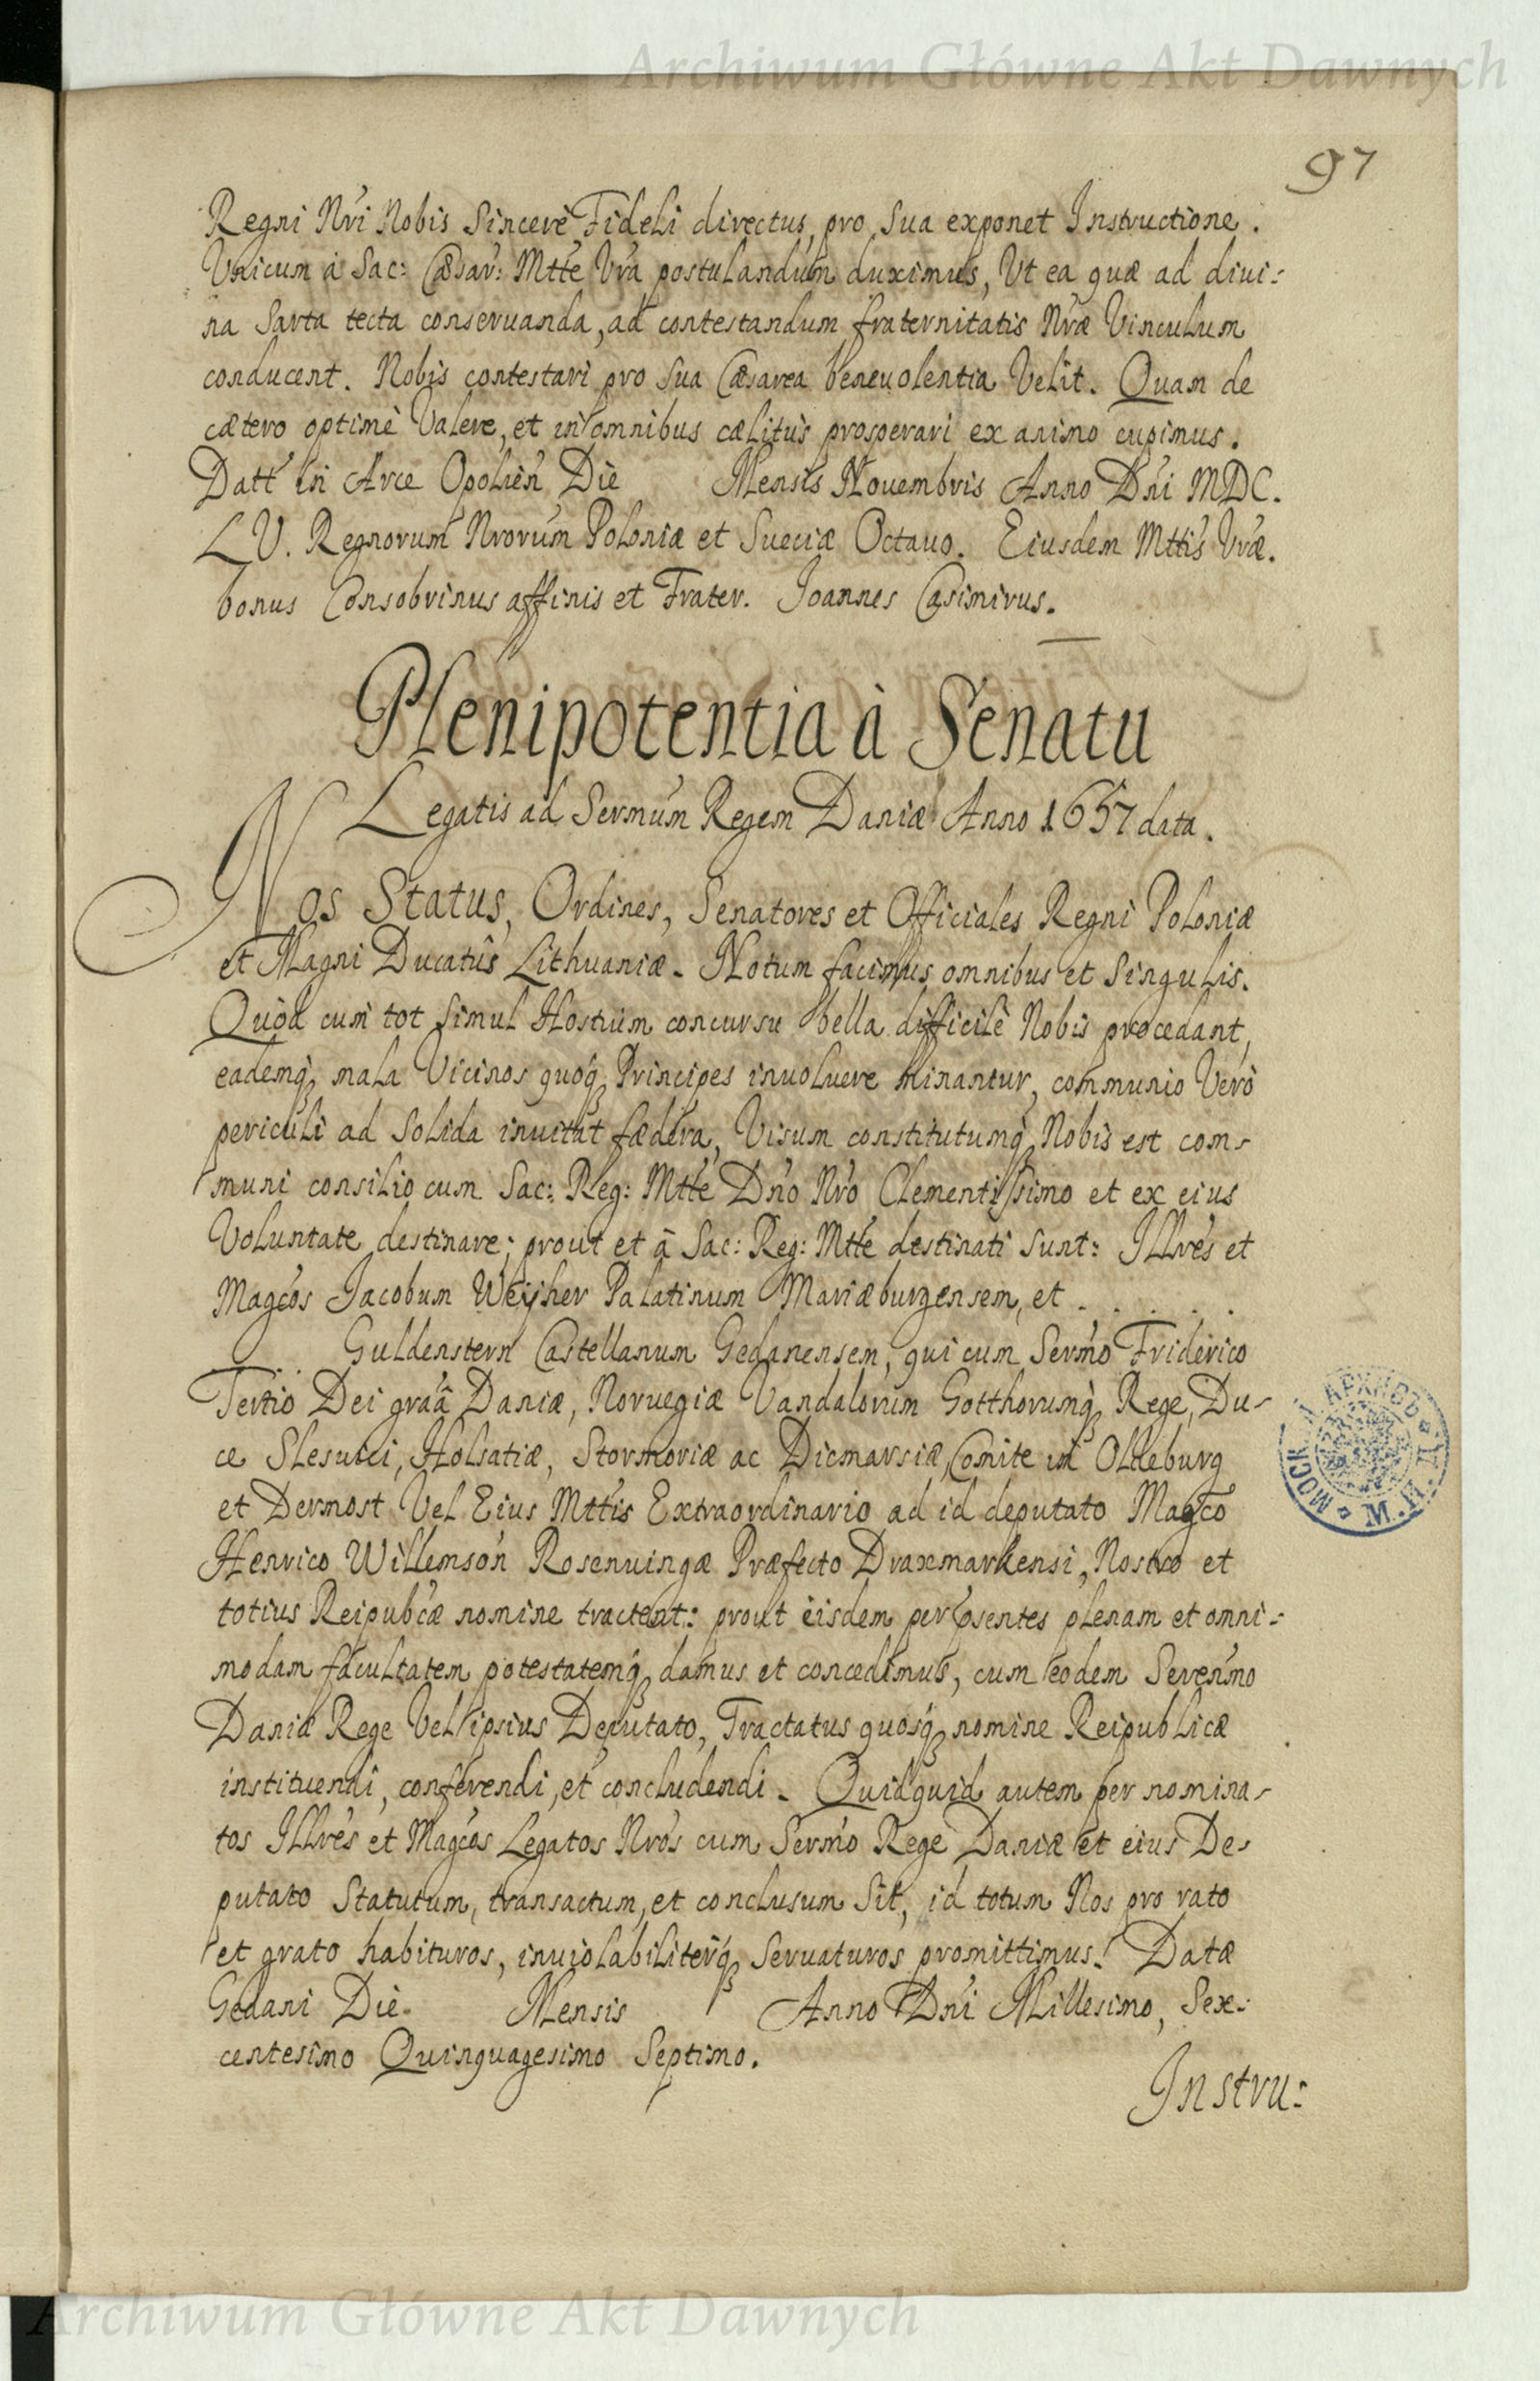 Archiwum Główne Akt Dawnych
97
Regni Nri Nobis Sincerè Fideli directus, pro Sua exponet Instructione.
Vnicum à Sac: Cæsar: Mtte Vra postulandum duximus, Vt ea quæ ad diui-
na Sarta tecta conseruanda, ad contestandum fraternitatis Nræ Vinculum
conducent. Nobis contestari pro Sua Cæsarea beneuolentia Velit. Quam de
cætero optimè Valere, et in omnibus cælitùs prosperari ex animo cupimus.
Datt in Arce Opolien Die Mensis Nouembris Anno Dni MDC.
LV. Regnorum Nrorum Poloniæ et Sueciæ Octauo. Eiusdem Mttis Vræ.
bonus Consobrinus affinis et Frater. Joannes Casimirus.
Plenipotentia à Senatu
Legatis ad Sermum Regem Daniæ Anno 1657 data.
Nos Status, Ordines, Senatores et Officiales Regni Poloniæ
et Magni Ducatûs Lithuaniæ. Notum facimus omnibus et Singulis.
Quòd cum tot Simul Hostium concursu bella difficilè Nobis procedant,
eademq3 mala Vicinos quoq3 Principes inuoluere minantur, communio Verò
periculi ad Solida inuitat fædera, Visum constitutumq3 Nobis est com-
muni consilio cum Sac: Reg: Mtte Dno Nro Clementissimo et ex eius
Voluntate destinare; prout et à Sac: Reg: Mtte destinati Sunt: Illres et
Magcos Jacobum Weyher Palatinum Mariæburgensem, et . . . . .
. . Guldenstern Castellanum Gedanensem, qui cum Sermo Friderico
Tertio Dei graâ Daniæ, Noruegiæ Vandalorum Gotthorumq3 Rege, Du-
ce Slesuici, Holsatiæ, Stormoriæ ac Dicmarsiæ Comite in Oldeburg
et Dermost Vel Eius Mttis Extraordinario ad id deputato Magco
Henrico Willemson Rosenuingæ Præfecto Draxmarkensi, Nostro et
totius Reipubcæ nomine tractent: prout eisdem per psentes plenam et omni-
modam facultatem potestatemq3 damus et concedimus, cum eodem Serenmo
Daniæ Rege Vel ipsius Deputato, Tractatus quosq3 nomine Reipublicæ
instituendi, conferendi, et concludendi. Quidquid autem per nomina-
tos Illres et Magcos Legatos Nros cum Sermo Rege Daniæ et eius De-
putato Statutum, transactum, et conclusum Sit, id totum Nos pro rato
et grato habituros, inuiolabiliterq3 Seruaturos promittimus. Datæ
Gedani Die. Mensis Anno Dni Millesimo, Sex-
centesimo Quinquagesimo Septimo.
Instru:
Archiwum Główne Akt Dawnych